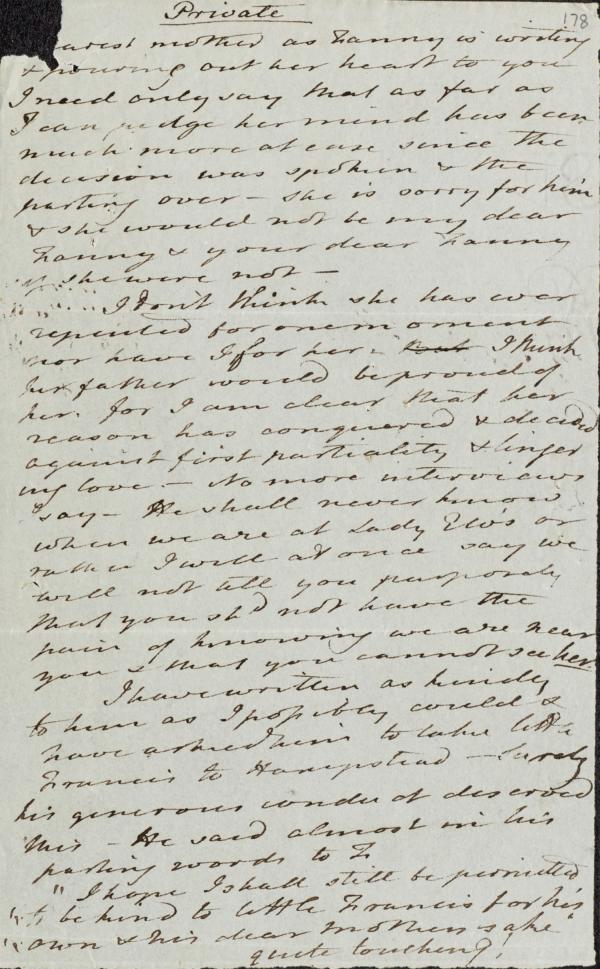 Private
178
earest mother as Fanny is writing
& pouring out her heart to you
I need only say that as far as
I can judge her mind has been
much more at ease since the
decision was spoken & the
parting over – she is sorry for him
& she would not be my dear
Fanny & your dear Fanny
if she were not –
I don't think she has ever
repented for one moment
nor have I for her. I think
her father would be proud of
her. for I am clear that her
reason has conquered & decided
against first partiality & linger
ing love – No more interviews
I say – He shall never know
when we are at Lady Elw's or
rather I will at once say we
will not tell you purposely
that you shd not have the
pain of knowing we are near
you & that you cannot see her.
I have written as kindly
to him as I possibly could &
have asked him to take little
Francis to Hampstead – Surely
his generous conduct deserved
this – He said almost in his
parting words to F
"I hope I shall still be permitted
"to be kind to little Francis for his
"own & his dear mothers sake"
quite touching!